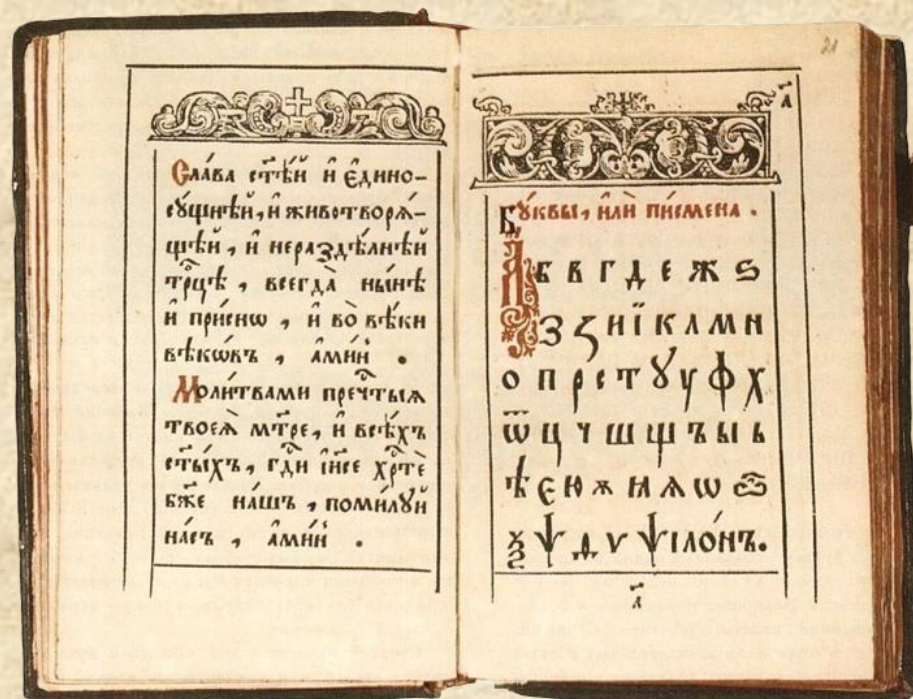 Сла́ва ст҃ѣ́й и҆ є҆дино-
сꙋ́щнѣй, и҆ животворѧ́-
щѣй, и҆ нераздѣ́лнѣй
трⷪ҇цѣ, всегда̀ ны́нѣ
и҆ при́снѡ, и҆ во вѣ́ки
вѣкѡ́въ, а҆ми́нь.
Моли́твами пречⷭ҇тыѧ
твоеѧ̀ мт҃ре, и҆ всѣ́хъ
ст҃ы́хъ, гдⷭ҇и і҆и҃се хрⷭ҇тѐ
бж҃е на́шъ, поми́лꙋй
на́съ, а҆ми́нь.
21
а҃
Бꙋ́квы, и҆лѝ писмена.
А Б В Г Д Е Ж Ѕ
З Ꙁ И Ї К Л М Н
О П Р С Т Ꙋ У Ф Х
Ѿ Ц Ч Ш Щ Ъ Ы Ь
Ѣ Є Ю Ѫ Ꙗ Ѧ Ѡ
Ѯ Ѱ Ѳ Ѵ Ѱіло́нъ.
а҃